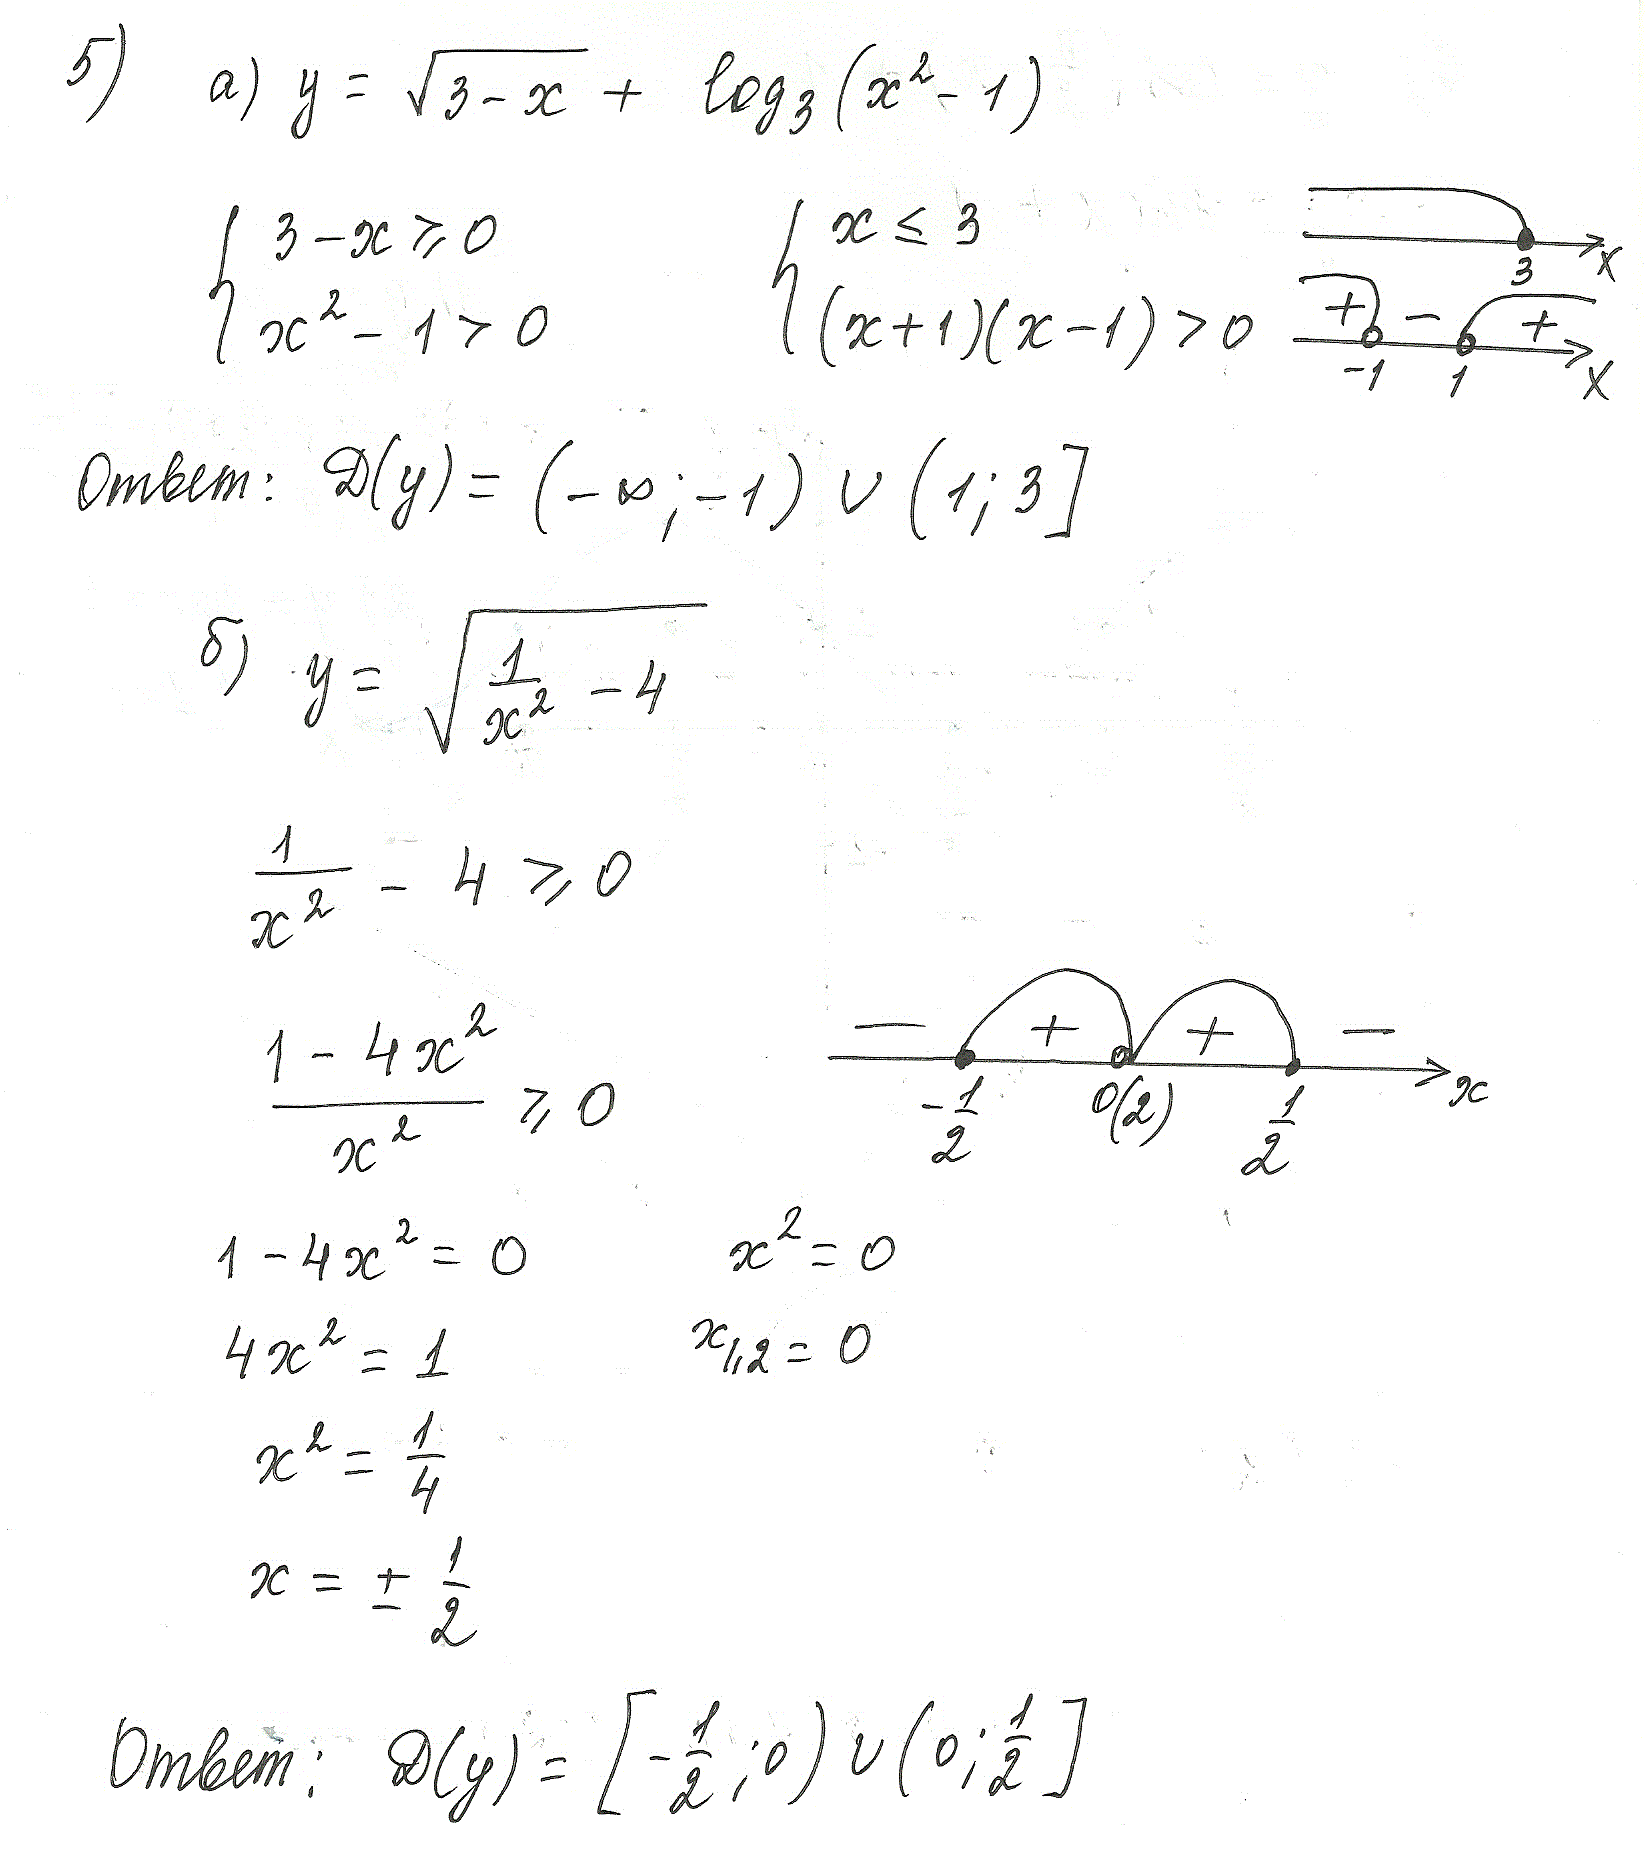 5) а) y = √(3 - x) + log₃(x² - 1)
{ 3 - x ⩾ 0 { x ≤ 3 3 x
x² - 1 > 0 (x+1)(x-1) > 0 + - + -1 1 x
Ответ: D(y) = (-∞; -1) ∪ (1; 3]
б) y = √(1/x² - 4)
1/x² - 4 ⩾ 0
(1 - 4x²)/x² ⩾ 0 - + + - -1/2 0(2) 1/2 x
1 - 4x² = 0 x² = 0
4x² = 1 x₁,₂ = 0
x² = 1/4
x = ± 1/2
Ответ: D(y) = [-1/2; 0) ∪ (0; 1/2]